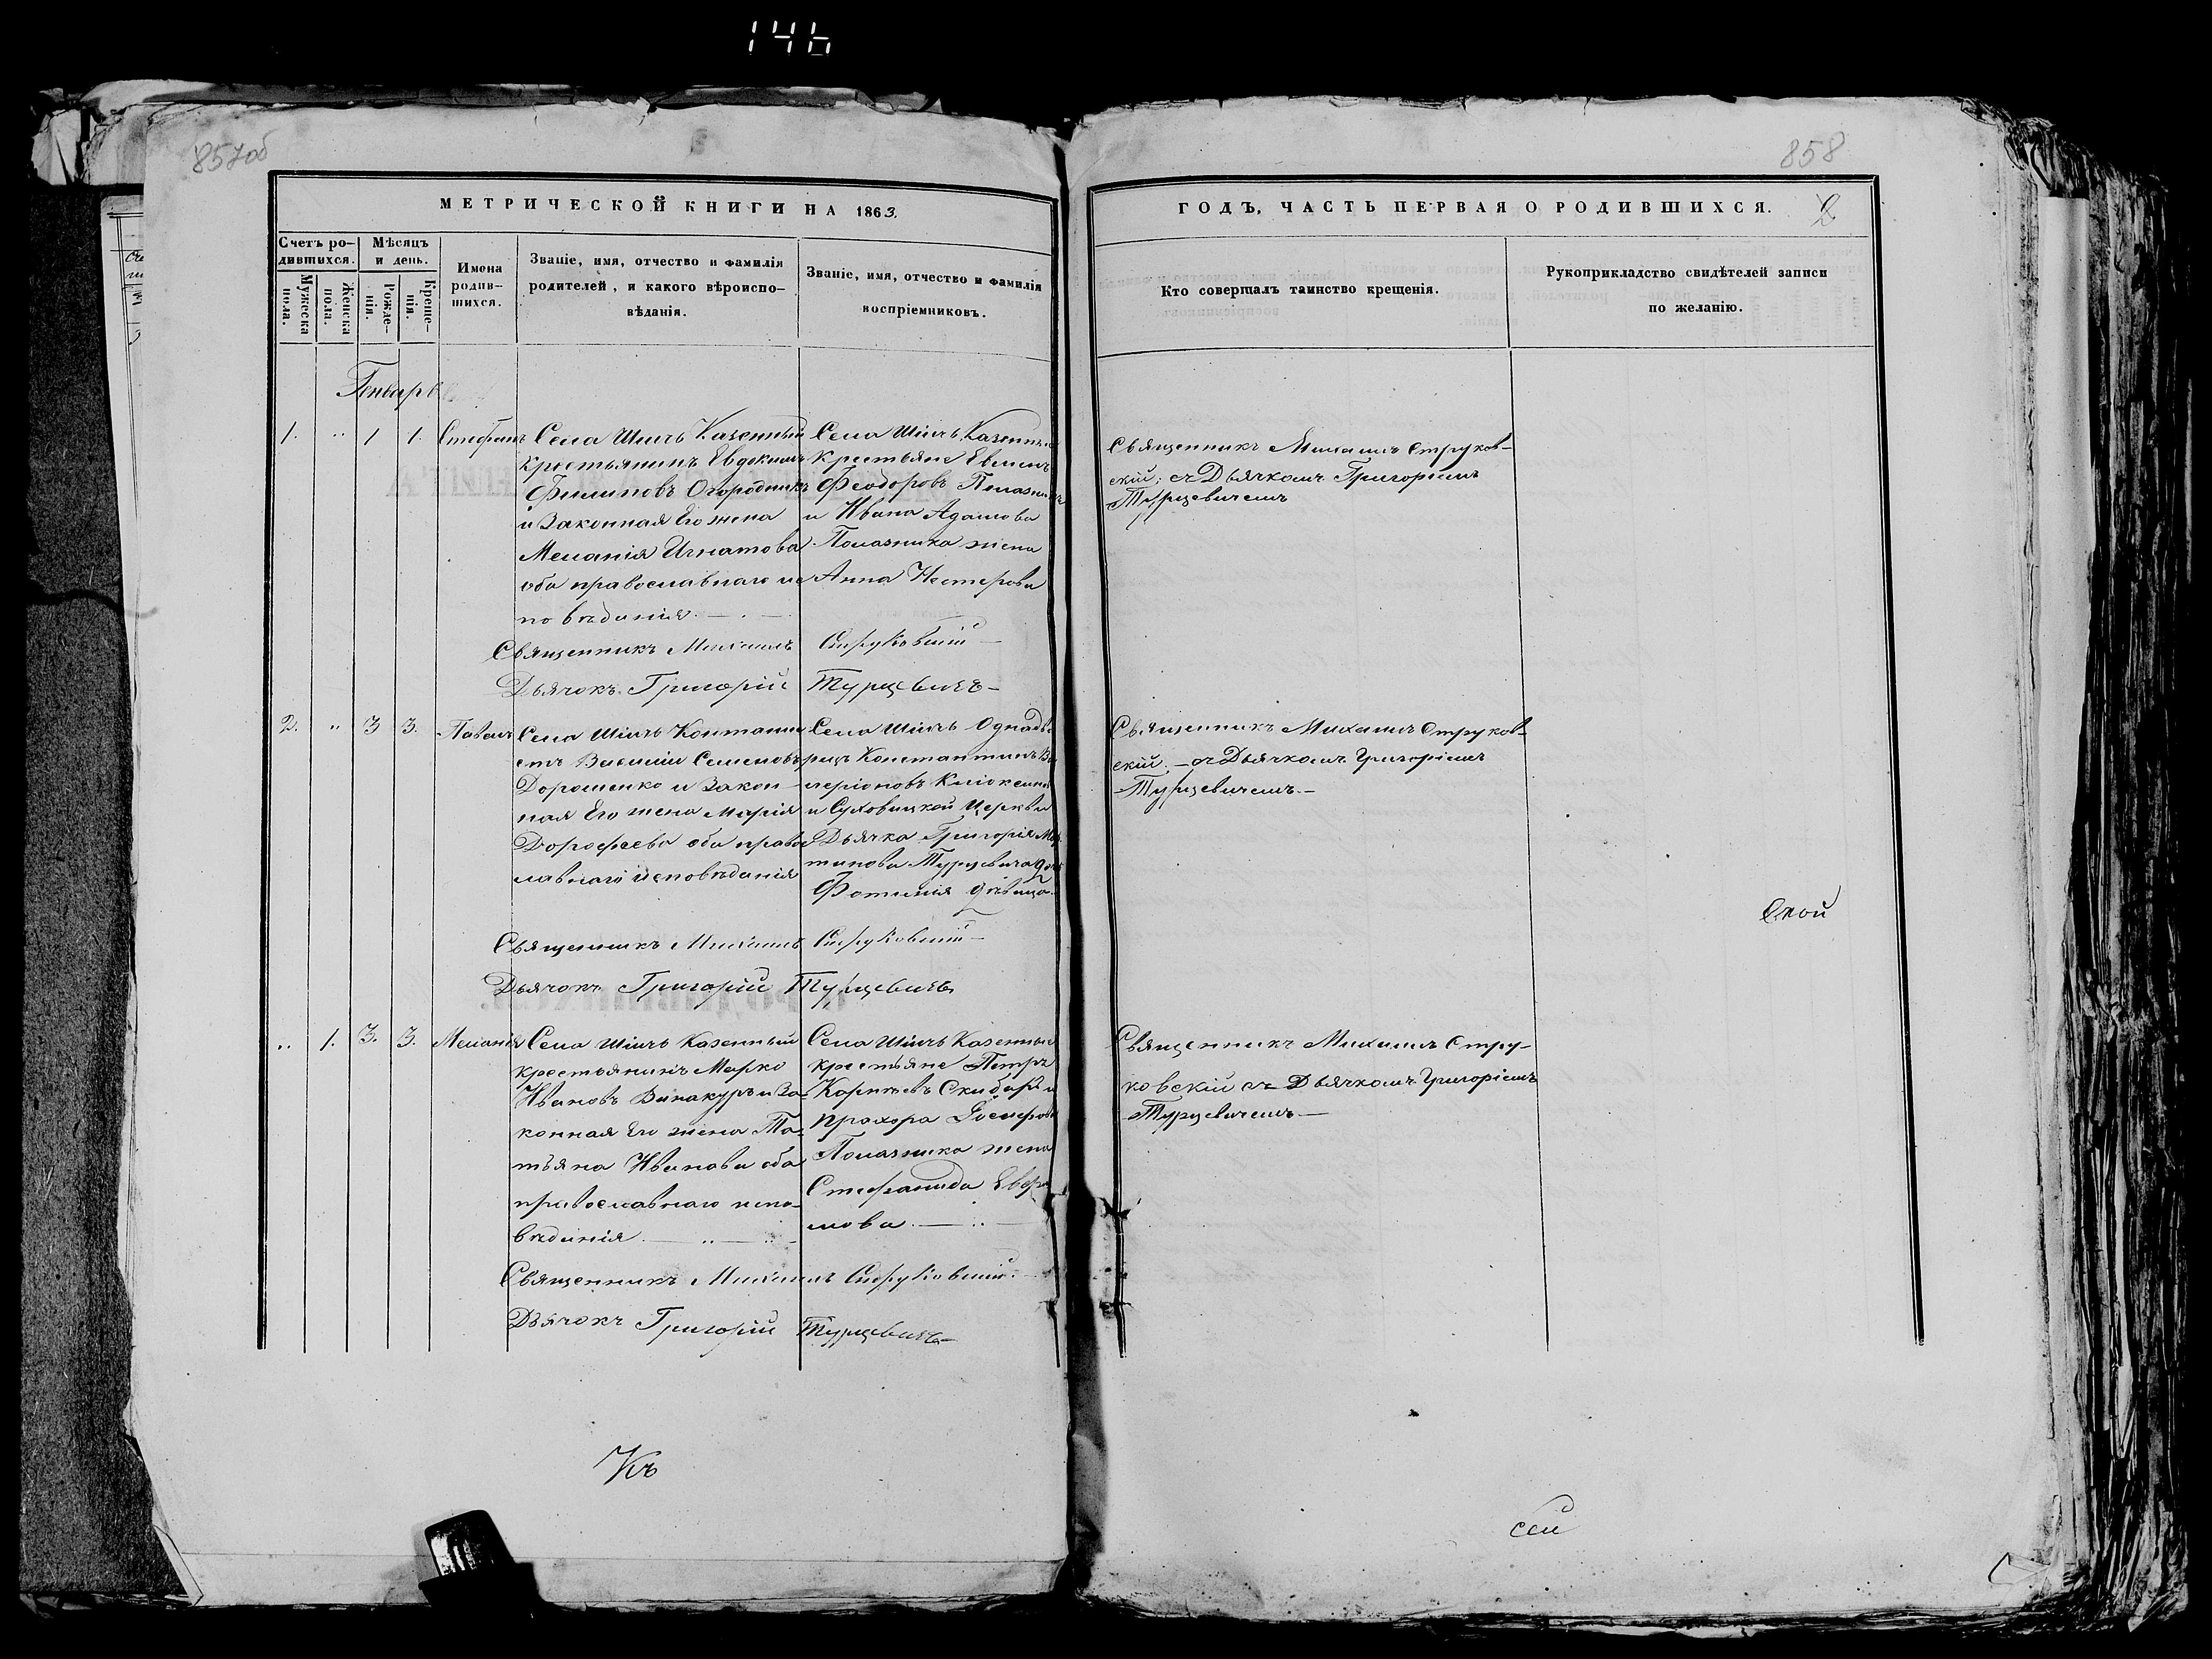 146
857об
858
МЕТРИЧЕСКОЙ КНИГИ НА 1863.
Счетъ ро-
дившихся.
Мужеска
пола.
Женска
пола.
Мѣсяцъ
и день.
Рожде-
нія.
Креще-
нія.
Имена
родив-
шихся.
Званіе, имя, отчество и фамилія
родителей, и какого вѣроиспо-
вѣданія.
Званіе, имя, отчество и фамилія
воспріемниковъ.
ГОДЪ, ЧАСТЬ ПЕРВАЯ О РОДИВШИХСЯ.
2
Кто совершалъ таинство крещенія.
Рукоприкладство свидѣтелей записи
по желанію.
Генварь
1. " 1 1. Стефанъ
Села Казенный
крестьянинъ Евдокимъ
Филиповъ Огородникъ
и Законная Его жена
Меланія Игнатова
оба православнаго ис
повѣданія
Села Казенные
крестьяне
Феодоровъ
и Ивана Адамова
Помазника жена
Анна Нестерова
Священникъ Михаилъ Струковскій
Дьячокъ Григорій Турцевичъ
Священникъ Михаилъ Струков-
скій; съ Дьячкомъ Григоріемъ
Турцевичемъ
2. " 3 3. Павелъ
Села
Василій Семеновъ
Дорошенко и Закон-
ная Его жена Марія
Дорофеева оба право
славнаго исповѣданія
Села Однодво
рцъ Константинъ
и Суховицкой Церкви
Дьячка Григорія
Турцевича
Фотинія дѣвица
Священникъ Михаилъ Струковскій
Дьячокъ Григорій Турцевичъ
Священникъ Михаилъ Струков-
скій. съ Дьячкомъ Григоріемъ
Турцевичемъ.
.. 1. 3. 3. Меланія
Села Казенный
крестьянинъ Марко
Ивановъ Винакуръ и За-
конная Его жена Та-
тьяна Иванова оба
православнаго испо-
вѣданія
Села Казенные
крестьяне Петръ
Корнѣевъ Скибарь и
Прохора
Помазника жена
Стефанида Евфи
мова
Священникъ Михаилъ Струковскій.
Дьячокъ Григорій Турцевичъ
Священникъ Михаилъ Стру-
ковскій съ Дьячкомъ Григоріемъ
Турцевичемъ
Къ
сей